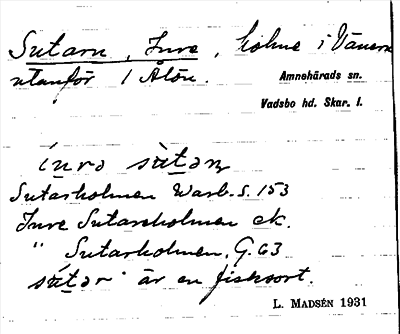 Sutarn, Inre, holme i Vänern
utanför 1 Åtön.
Amnehärads sn.
Vadsbo hd. Skar. l.
Sutarholmen Warb. S. 153
Inre Sutareholmen ek.
" Sutarholmen, G. 63
är en fisksort.
L. MADSÉN 1931